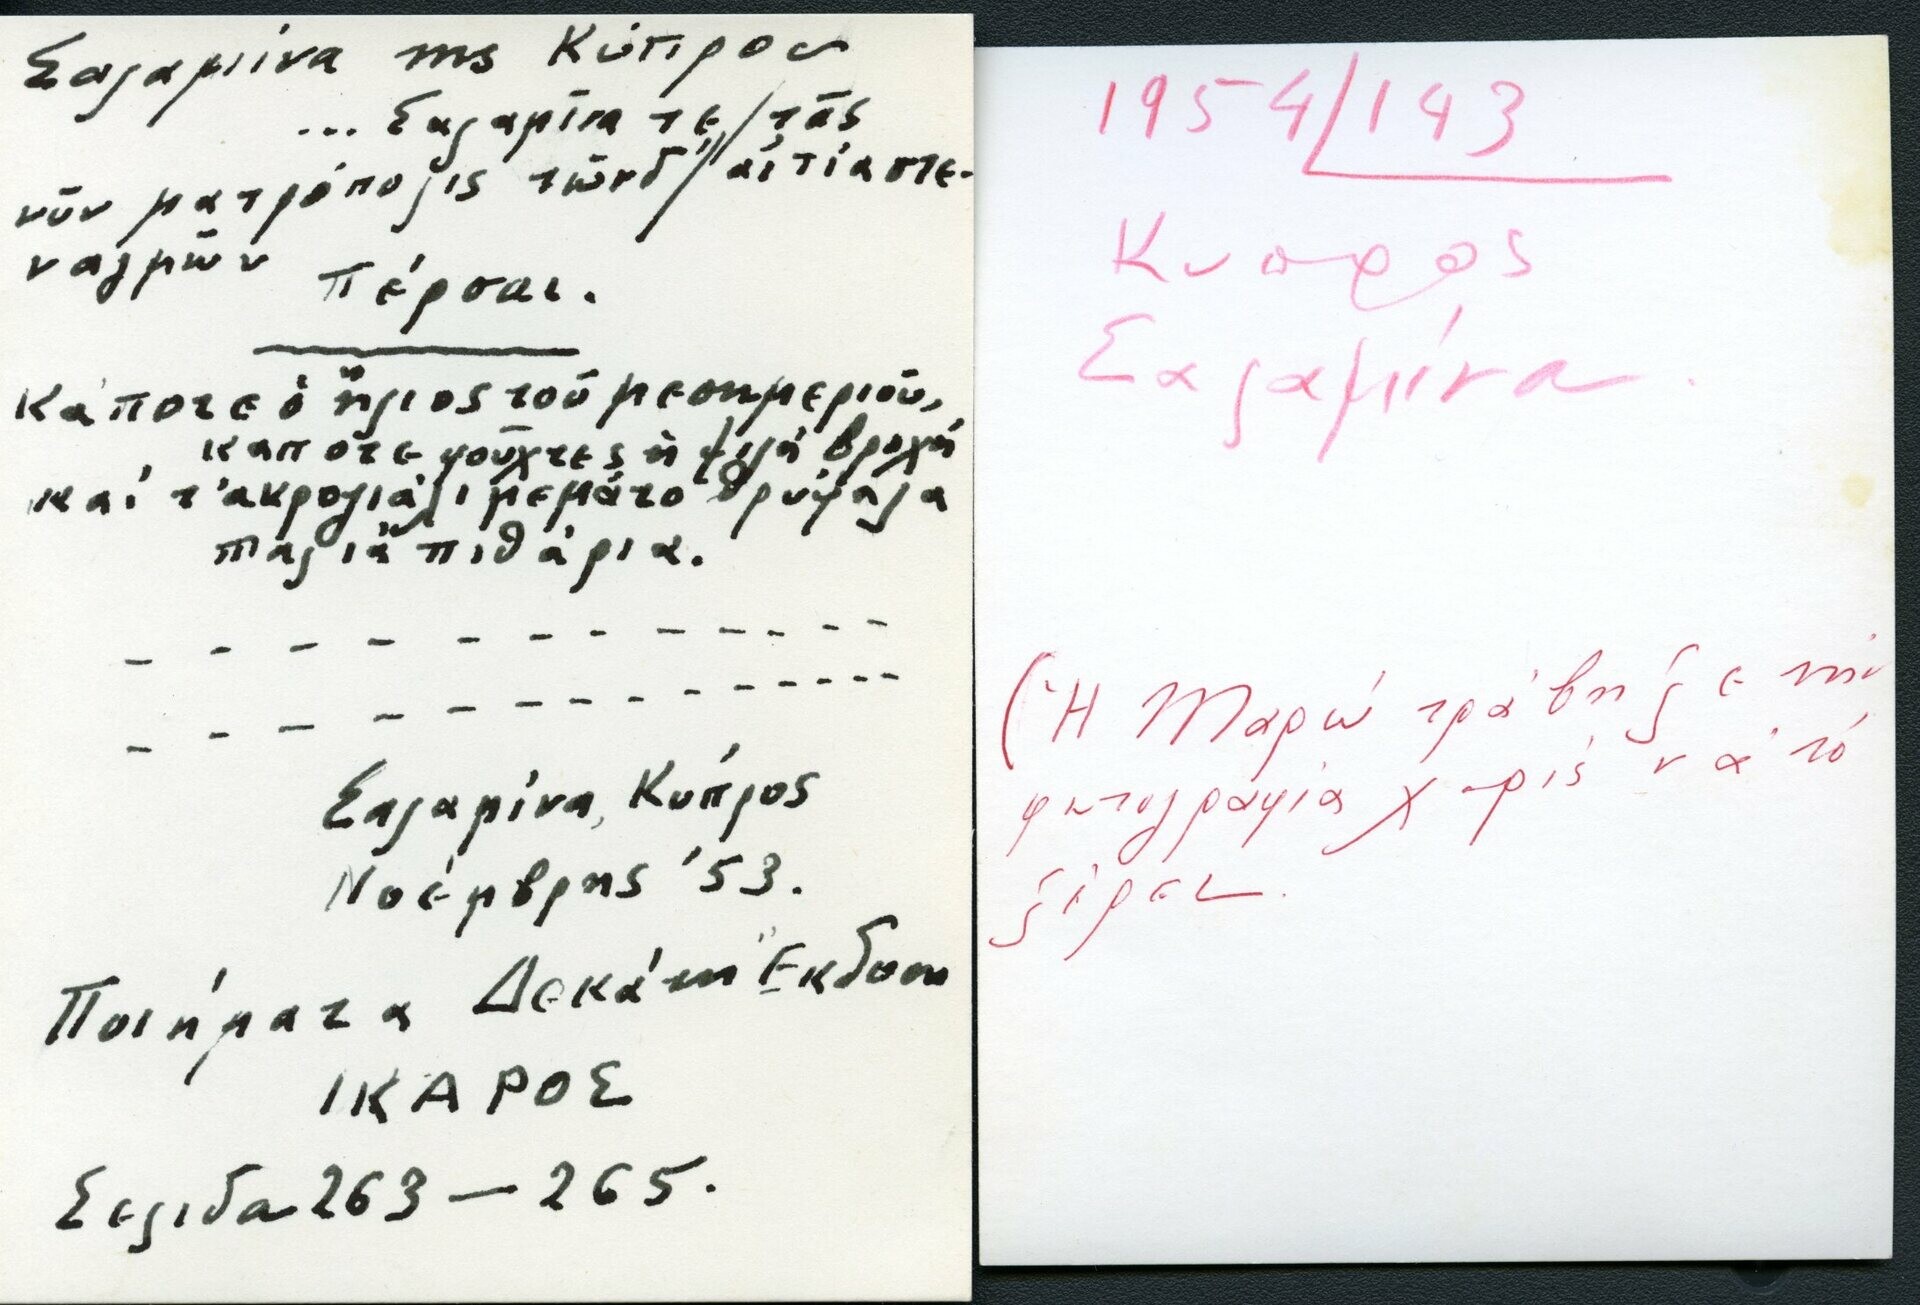 Σαλαμίνα της Κύπρου
... Σαλαμῖνα τε/τᾶς
νῦν ματρόπολις τῶνδ'/αἰτία στε-
ναγμῶν
Πέρσαι.
Κάποτε ὁ ἥλιος τοῦ μεσημεριοῦ,
καποτε φοῦχτες ἡ ψιλή βροχή
καί τ' ακρογιάλι γεμάτο θρύψαλα
παλιά πιθάρια.
Σαλαμίνα, Κύπρος
Νοέμβρης '53.
Ποιήματα Δεκάτη Ἔκδοση
ΙΚΑΡΟΣ
Σελιδα 263 — 265.
1954/143
Κυπρος
Σαλαμίνα.
(Ἡ Μαρώ τράβηξε τήν
φωτογραφία χωρίς νά τό
ξέρει.